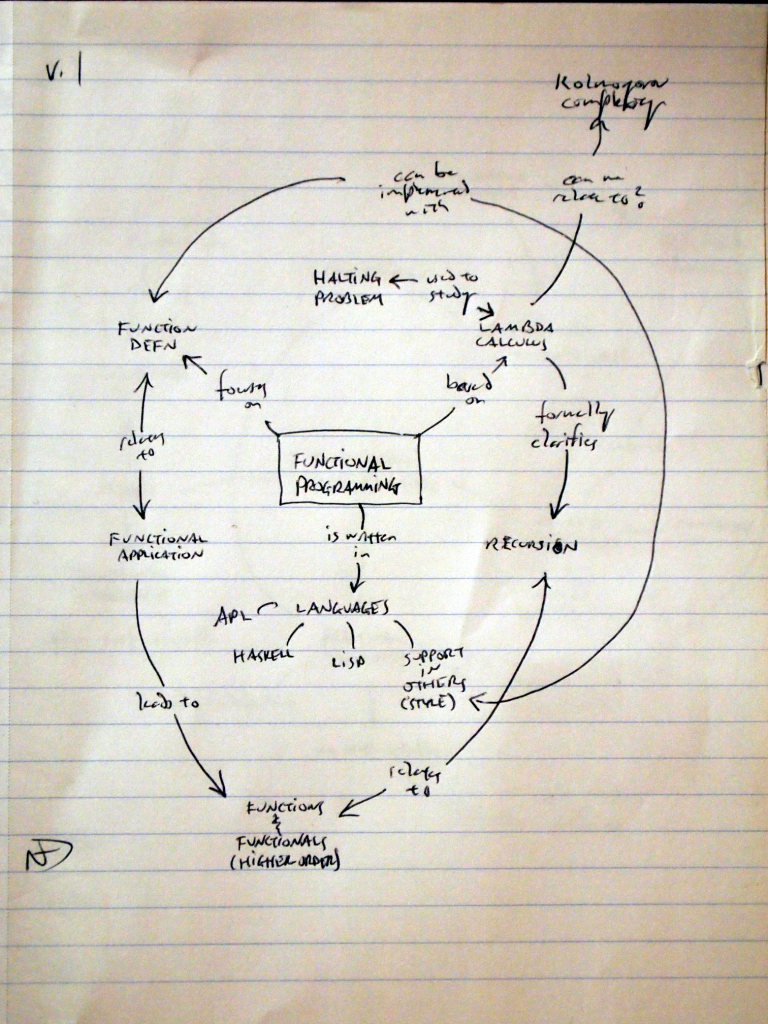 V. 1
Kolmogorov
complexity
can be
implemented
with
can we
relate to?
HALTING
PROBLEM
used to
study
LAMBDA
CALCULUS
FUNCTION
DEFN
focuses
on
based
on
formally
clarifies
relates
to
FUNCTIONAL
PROGRAMMING
FUNCTIONAL
APPLICATION
is written
in
RECURSION
LANGUAGES
APL
HASKELL
LISP
SUPPORT
IN
OTHERS
(STYLE)
leads to
relates
to
FUNCTIONS
&
FUNCTIONALS
(HIGHER ORDER)